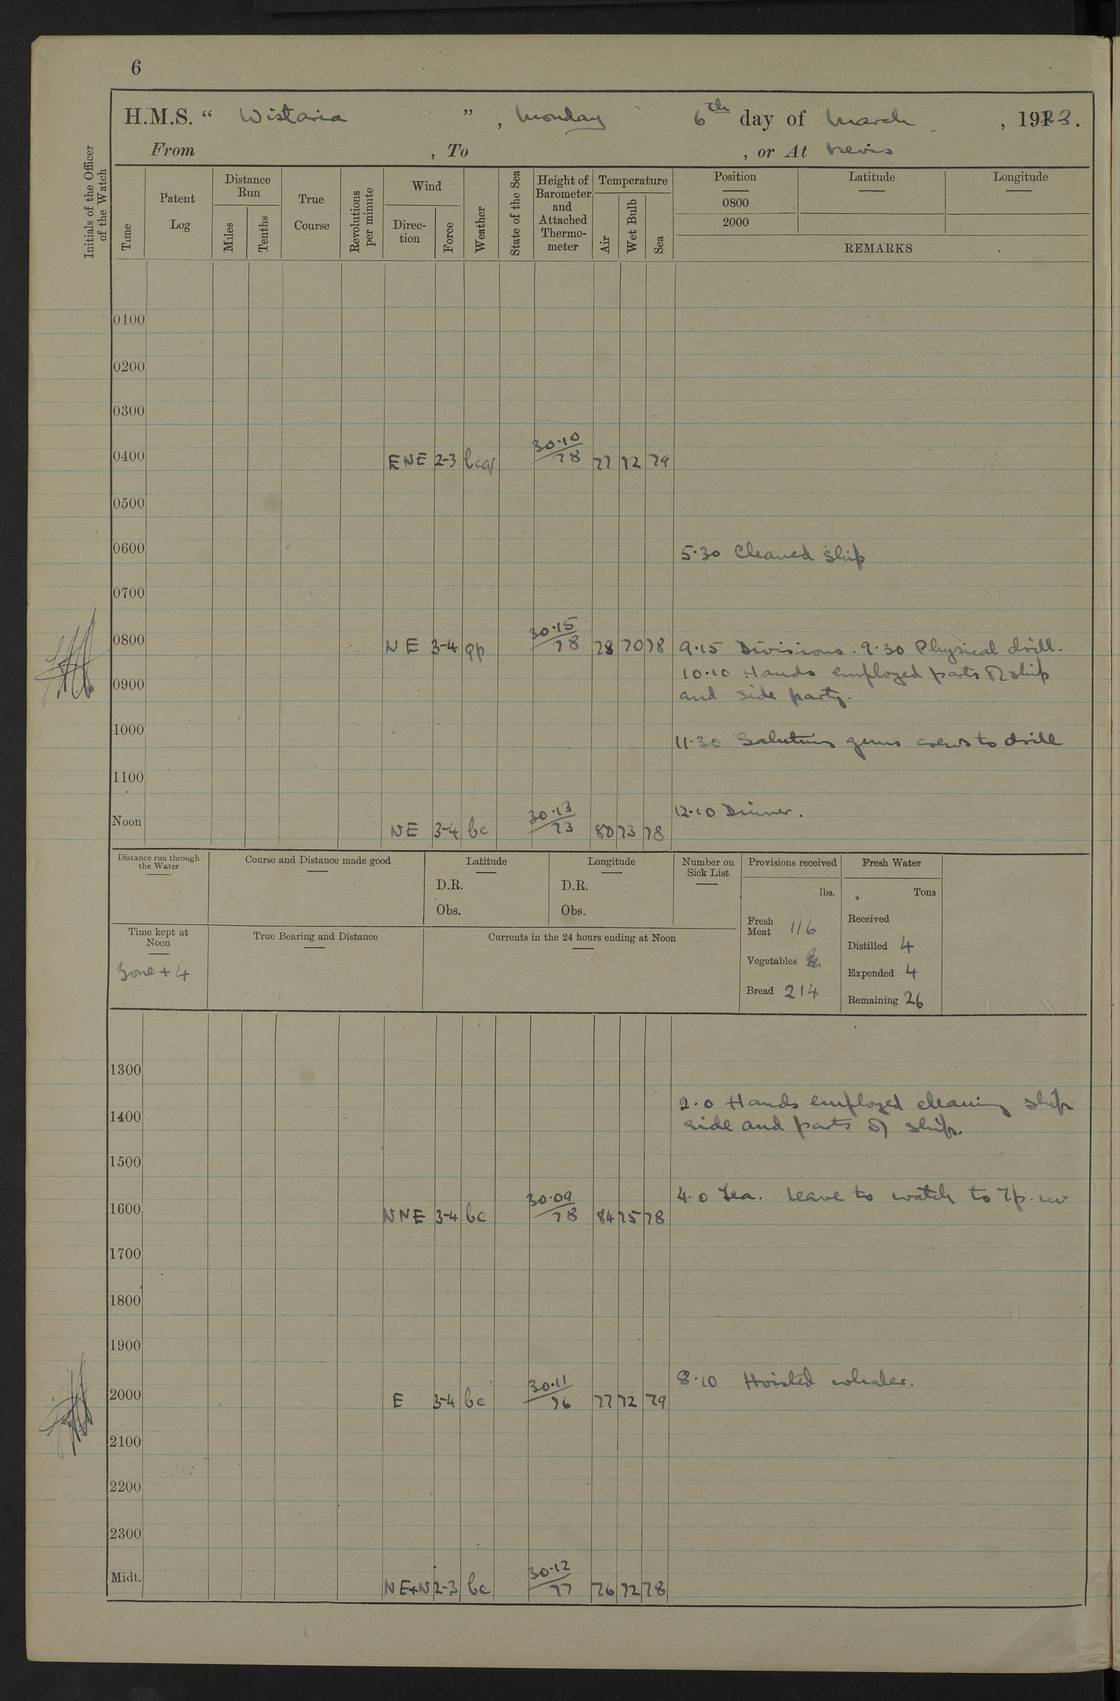 6
H.M.S. “ Wistaria ” , Monday 6th day of March , 1923.
From , To , or At Nevis
Initials of the Officer of the Watch
Time
Patent Log
Distance Run
Miles
Tenths
True Course
Revolutions per minute
Wind
Direc-tion
Force
Weather
State of the Sea
Height of Barometer and Attached Thermo-meter
Temperature
Air
Wet Bulb
Sea
Position Latitude Longitude
0800
2000
REMARKS
0100
0200
0300
0400 ENE 2-3 bcq 30.10/78 77 72 79
0500
0600 5.30 Cleaned ship
0700
0800 NE 3-4 qp 30.15/78 78 70 78 9.15 Divisions. 9.30 Physical drill.
0900 10.10 Hands employed parts of ship
and side party.
1000 11.30 Saluting guns crews to drill
1100
Noon NE 3-4 bc 30.13/73 80 73 78 12.10 Dinner.
Distance run through the Water
Course and Distance made good
Latitude
D.R.
Obs.
Longitude
D.R.
Obs.
Number on Sick List
Provisions received
lbs.
Fresh Meat 116
Vegetables
Bread 214
Fresh Water
Tons
Received
Distilled 4
Expended 4
Remaining 26
Time kept at Noon
Zone + 4
True Bearing and Distance
Currents in the 24 hours ending at Noon
1300
1400 2.0 Hands employed cleaning ship
side and parts of ship.
1500
1600 NNE 3-4 bc 30.09/78 84 75 78 4.0 Tea. Leave to watch to 7p.m
1700
1800
1900
2000 E 3-4 bc 30.11/76 77 72 79 8.10 Hoisted whaler.
2100
2200
2300
Midt. NE+N 2-3 bc 30.12/77 76 72 78